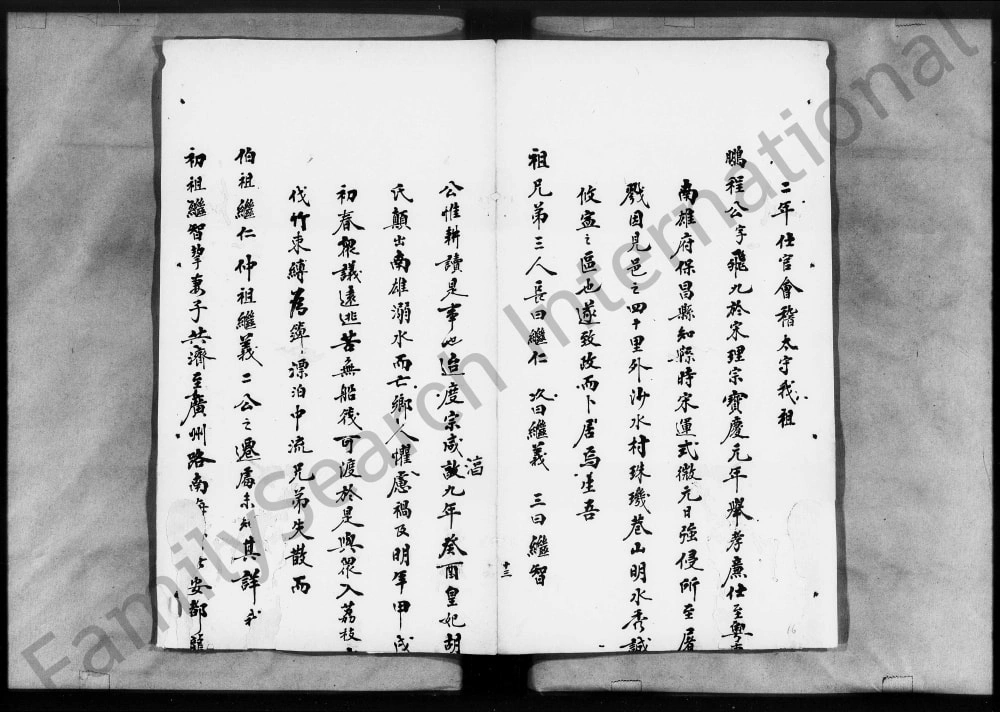 二年仕官會稽太守我祖
鵬程公字飛九於宋理宗寶慶元年舉孝廉仕至粵
南雄府保昌縣知縣時宋運式微元日強侵所至屠
戮因見邑之四十里外沙水村珠璣巷山明水秀誠
攸寍之區也遂致政而卜居焉生吾
祖兄弟三人長曰繼仁 次曰繼義 三曰繼智
十三
公惟耕讀是事也迨度宗咸淳九年癸酉皇妃胡
氏顛出南雄溺水而亡鄉人懼慮禍及明年甲戌
初春眾議遠逃苦無船筏可渡於是與眾入荔枝
伐竹束縛為簰漂泊中流兄弟失散而
伯祖繼仁仲祖繼義二公之遷居未知其詳我
初祖繼智挈妻子共濟至廣州路南海 安都
16
FamilySearch International